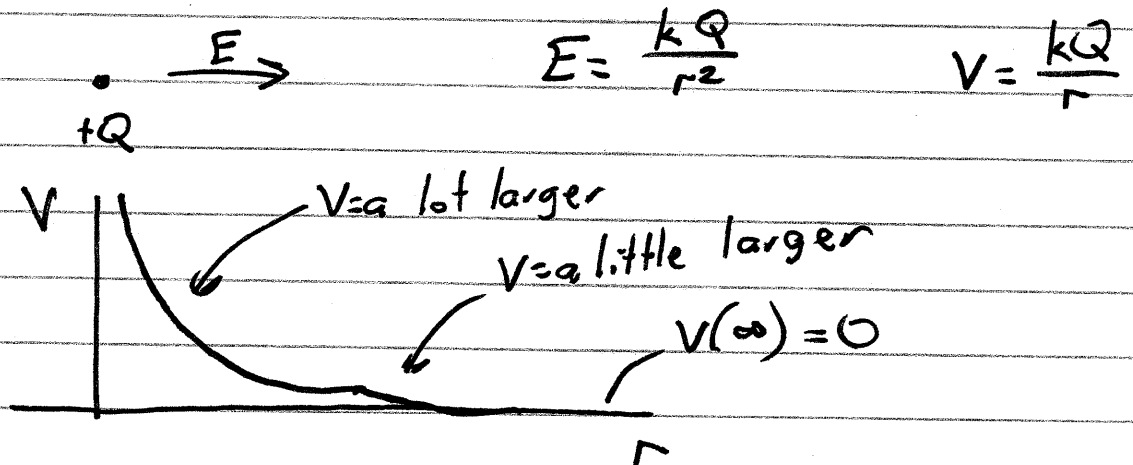 E
E = kQ/r²
V = kQ/r
+Q
V
V=a lot larger
V=a little larger
V(∞) = 0
r